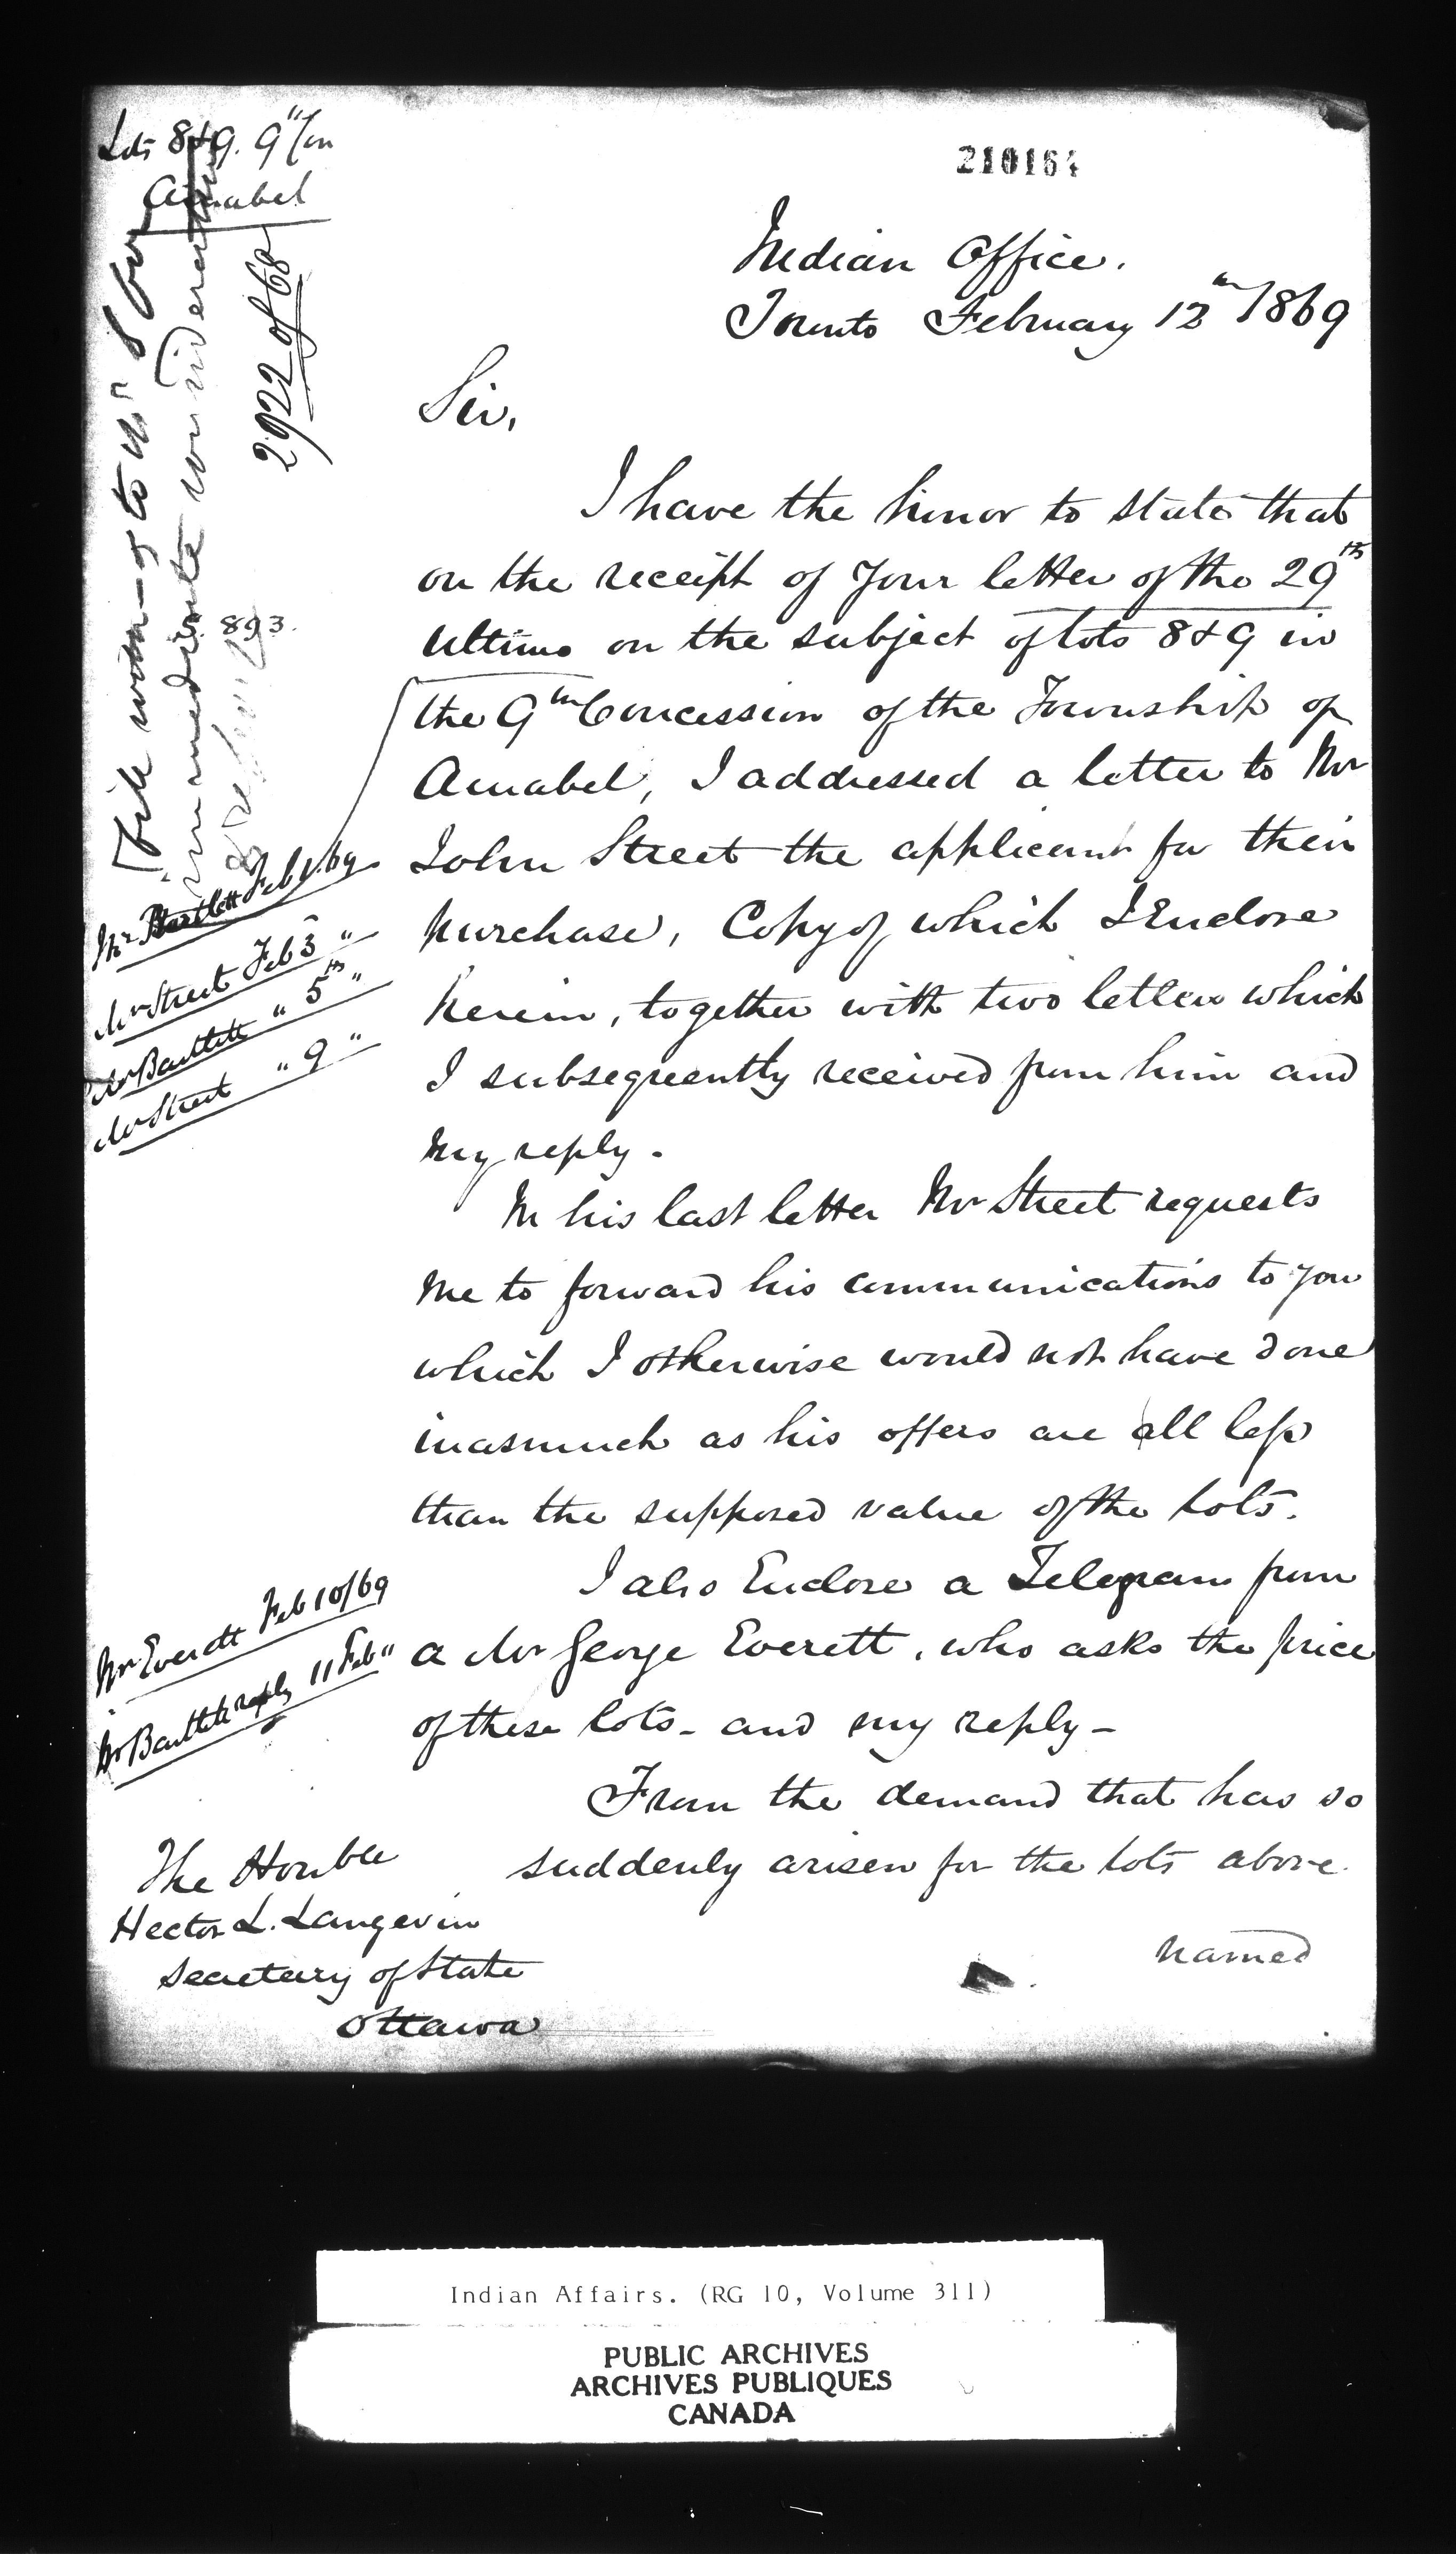 Lots 8 & 9. 9th Con
Amabel
2922 of 68
immediate consideration
893.
210164
Indian Office.
Toronto February 12th 1869
Sir,
I have the honor to state that
on the receipt of your letter of the 29th
Ultimo on the subject of lots 8 & 9 in
the 9th Concession of the Township of
Amabel, I addressed a letter to Mr
John Street the applicant for their
purchase, Copy of which I Enclose
herein, together with two letters which
I subsequently received from him and
my reply.
Mr Bartlett Feb 1. 69
Mr Street Feb 3 "
Mr Bartlett " 5th "
Mr Street " 9 "
In his last letter Mr Street requests
me to forward his communications to you
which I otherwise would not have done
inasmuch as his offers are all less
than the supposed value of the lots.
I also Enclose a Telegram from
a Mr George Everett, who asks the price
of these lots - and my reply -
Mr Everett Feb 10/69
Mr Bartlett reply 11 Feb "
From the demand that has so
suddenly arisen for the lots above
named
The Honble
Hector L. Langevin
Secretary of State
Ottawa
Indian Affairs. (RG 10, Volume 311)
PUBLIC ARCHIVES
ARCHIVES PUBLIQUES
CANADA